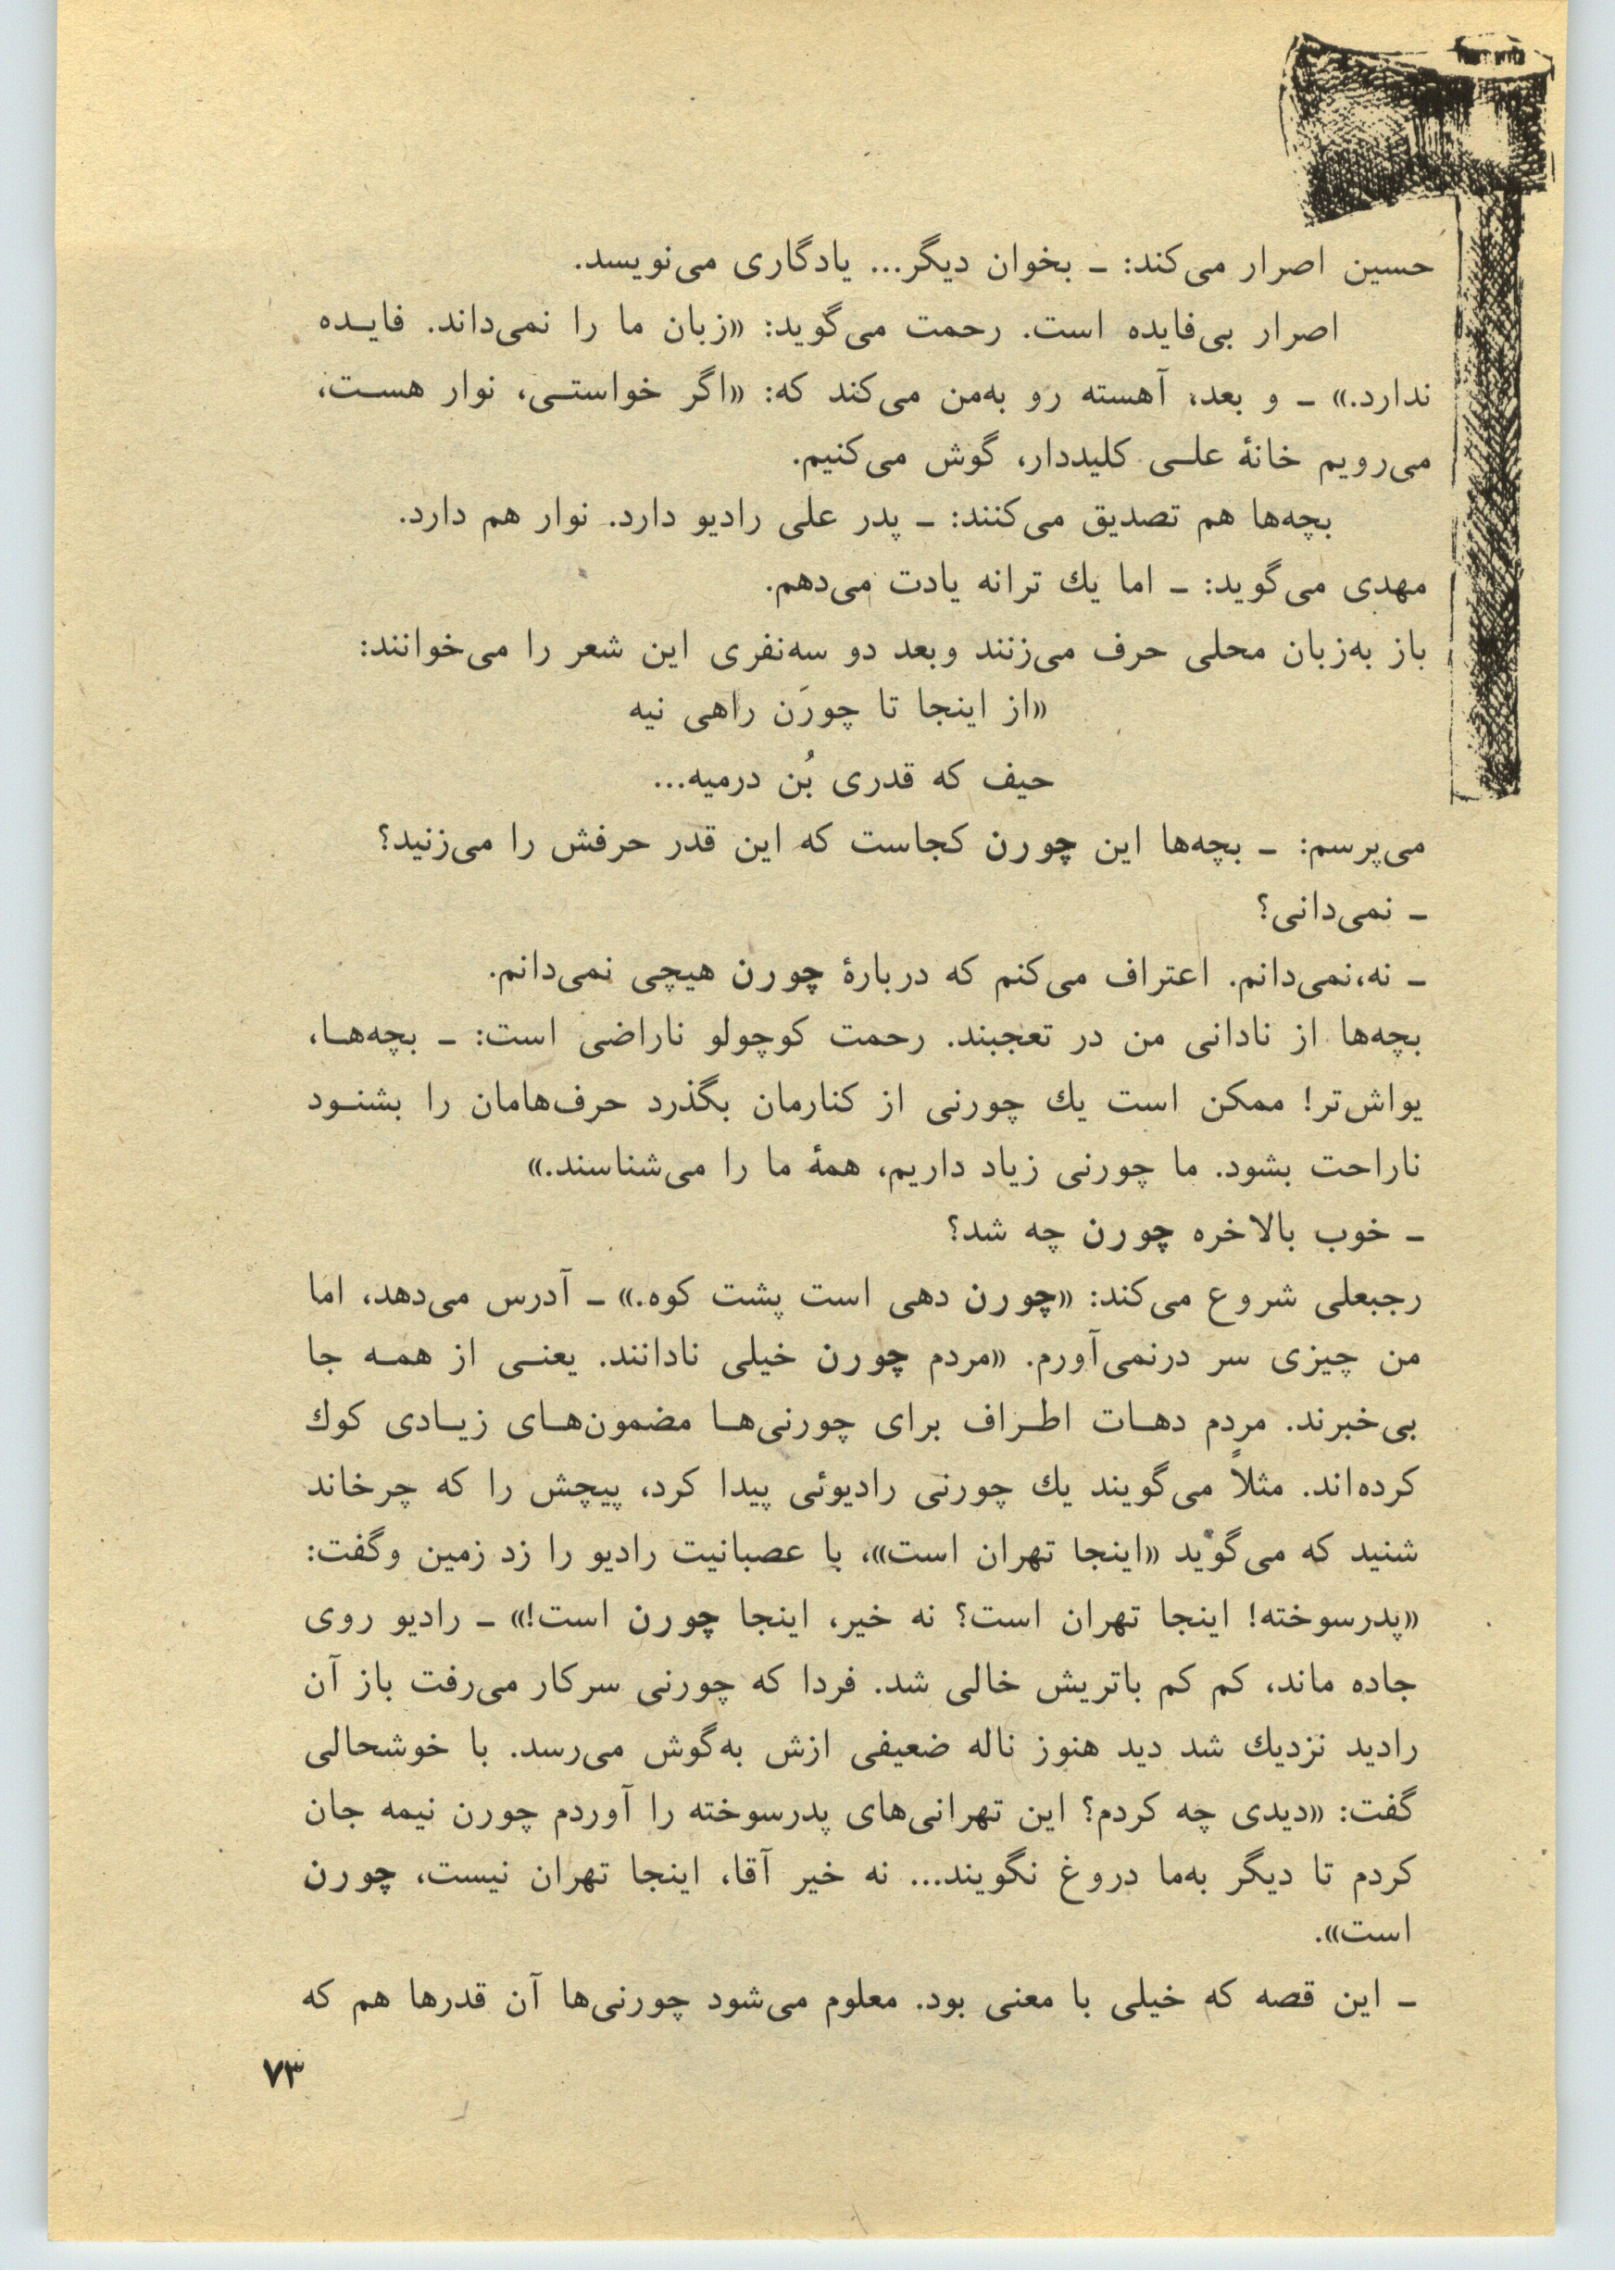 حسین اصرار می‌کند: ــ بخوان دیگر... یادگاری می‌نویسد.
اصرار بی‌فایده است. رحمت می‌گوید: «زبان ما را نمی‌داند. فایـده
ندارد.» ــ و بعد، آهسته رو به‌من می‌کند که: «اگر خواستـی، نوار هسـت،
می‌رویم خانهٔ علـی کلیددار، گوش می‌کنیم.
بچه‌ها هم تصدیق می‌کنند: ــ پدر علی رادیو دارد. نوار هم دارد.
مهدی می‌گوید: ــ اما یك ترانه یادت می‌دهم.
باز به‌زبان محلی حرف می‌زنند وبعد دو سه‌نفری این شعر را می‌خوانند:
«از اینجا تا چورَن راهی نیه
حیف که قدری بُن درمیه...
می‌پرسم: ــ بچه‌ها این چورن کجاست که این قدر حرفش را می‌زنید؟
ــ نمی‌دانی؟
ــ نه،نمی‌دانم. اعتراف می‌کنم که دربارهٔ چورن هیچی نمی‌دانم.
بچه‌ها از نادانی من در تعجبند. رحمت کوچولو ناراضی است: ــ بچه‌هـا،
یواش‌تر! ممکن است یك چورنی از کنارمان بگذرد حرف‌هامان را بشنـود
ناراحت بشود. ما چورنی زیاد داریم، همهٔ ما را می‌شناسند.»
ــ خوب بالاخره چورن چه شد؟
رجبعلی شروع می‌کند: «چورن دهی است پشت کوه.» ــ آدرس می‌دهد، اما
من چیزی سر درنمی‌آورم. «مردم چورن خیلی نادانند. یعنـی از همـه جا
بی‌خبرند. مردم دهـات اطـراف برای چورنی‌هـا مضمون‌هـای زیـادی کوك
کرده‌اند. مثلاً می‌گویند یك چورنی رادیوئی پیدا کرد، پیچش را که چرخاند
شنید که می‌گوید «اینجا تهران است»، با عصبانیت رادیو را زد زمین وگفت:
«پدرسوخته! اینجا تهران است؟ نه خیر، اینجا چورن است!» ــ رادیو روی
جاده ماند، کم کم باتریش خالی شد. فردا که چورنی سرکار می‌رفت باز آن
رادید نزدیك شد دید هنوز ناله ضعیفی ازش به‌گوش می‌رسد. با خوشحالی
گفت: «دیدی چه کردم؟ این تهرانی‌های پدرسوخته را آوردم چورن نیمه جان
کردم تا دیگر به‌ما دروغ نگویند... نه خیر آقا، اینجا تهران نیست، چورن
است».
ــ این قصه که خیلی با معنی بود. معلوم می‌شود چورنی‌ها آن قدرها هم که
۷۳